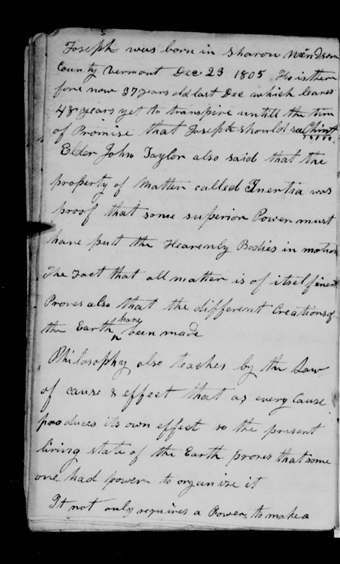 Joseph was born in Sharon Windsor
County Vermont Dec 23 1805 He is there
fore now 37 years old last Dec which leaves
48 years yet to transpire untill the time
of Promise that Joseph should see Christ
Elder John Taylor also said that the
property of Matter called Inertia was
proof that some superior Power must
have put the Heavenly Bodies in motion
The Fact that all matter is of itself finert
Proves also that the different Creations of
the Earth have been made
Philosophy also teaches by the Law
of cause & effect that as every Cause
produces its own effect so the present
living state of the Earth proves that some
one had power to organize it
It not only requires a Power to make a